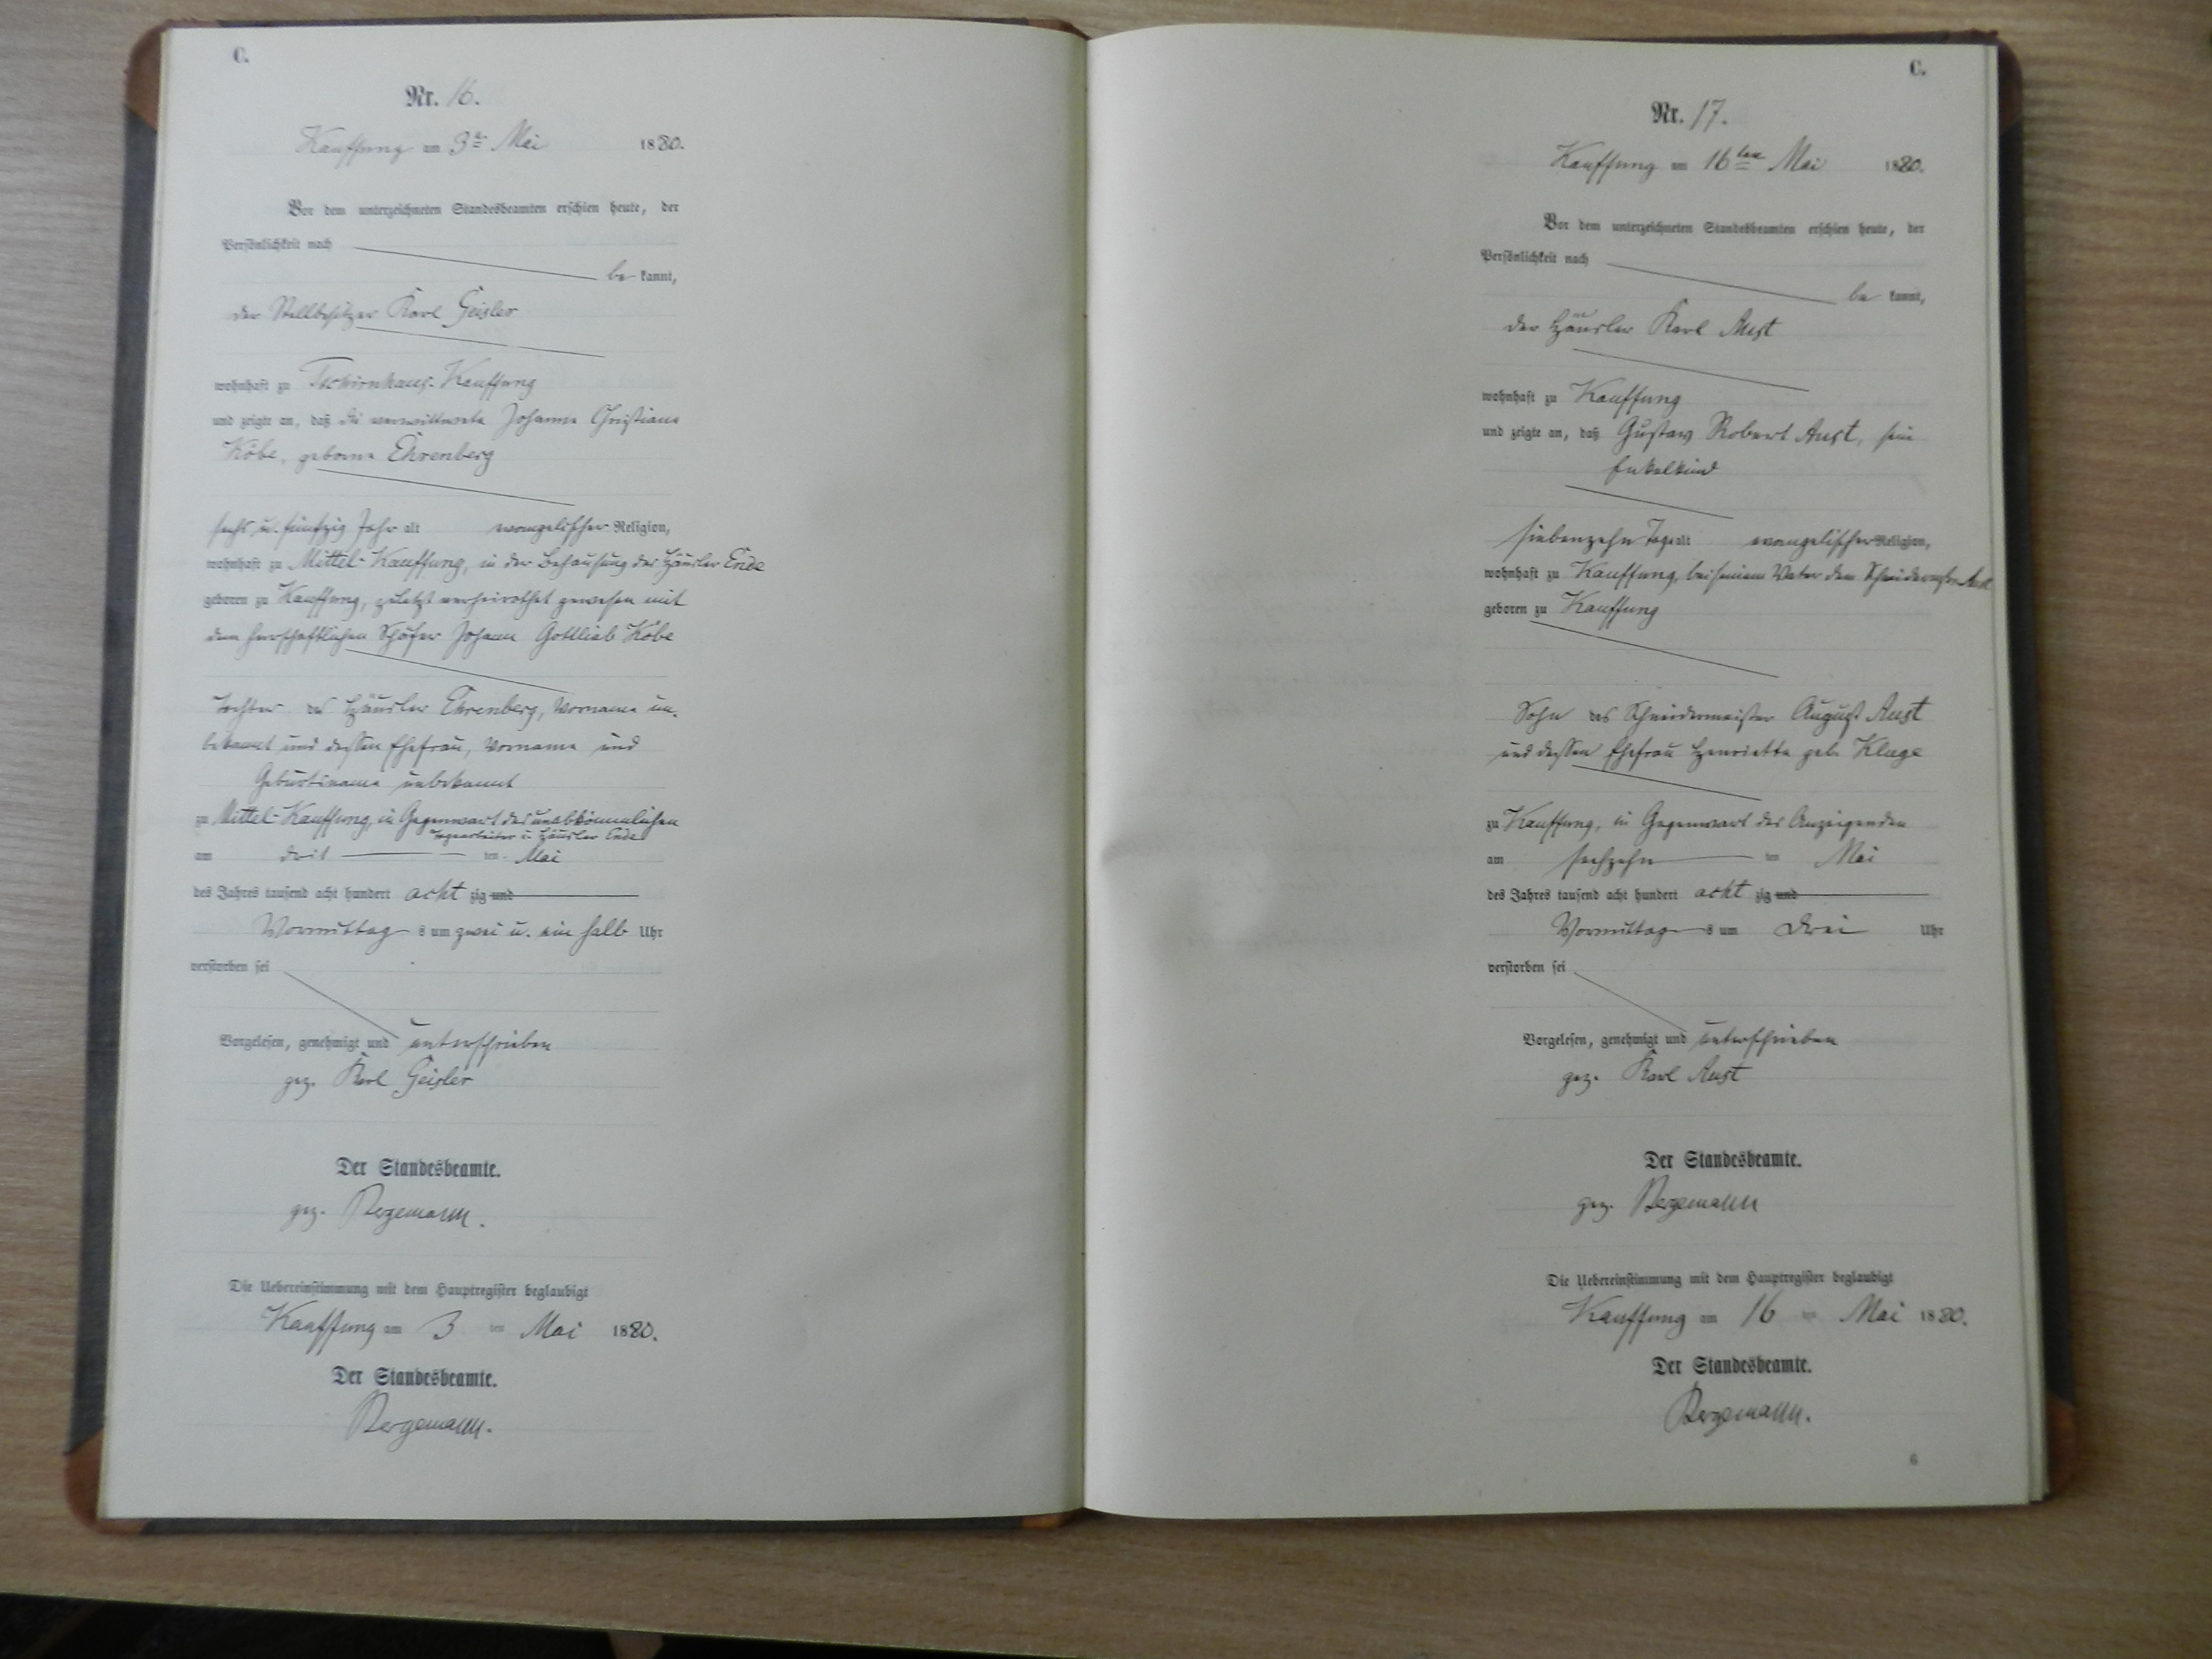 C.
Nr. 16.
Kauffung am 3t. Mai 1880.
Vor dem unterzeichneten Standesbeamten erschien heute, der
Persönlichkeit nach
be kannt,
der Stellbesitzer Karl Geisler
wohnhaft zu Tschirnhaus-Kauffung
und zeigte an, daß die verwittwete Johanne Christiane
Köbe, geborne Ehrenberg
sechs u. fünfzig Jahr alt evangelischer Religion,
wohnhaft zu Mittel-Kauffung, in der Behausung des Häusler Ende
geboren zu Kauffung, zuletzt verheirathet gewesen mit
dem herrschaftlichen Schäfer Johann Gottlieb Köbe
Tochter des Häusler Ehrenberg, Vorname un-
bekannt und dessen Ehefrau, Vorname und
Geburtsname unbekannt
zu Mittel-Kauffung, in Gegenwart des unabkömmlichen
Tagearbeiter u. Häusler Ende
am drit ten Mai
des Jahres tausend acht hundert acht zig und
Vormittag s um zwei u. ein halb Uhr
verstorben sei
Vorgelesen, genehmigt und unterschrieben
gez. Karl Geisler
Der Standesbeamte.
gez. Bergemann.
Die Uebereinstimmung mit dem Hauptregister beglaubigt
Kauffung am 3 ten Mai 1880.
Der Standesbeamte.
Bergemann.
C.
Nr. 17.
Kauffung am 16ten Mai 1880.
Vor dem unterzeichneten Standesbeamten erschien heute, der
Persönlichkeit nach
be kannt,
der Häusler Karl Aust
wohnhaft zu Kauffung
und zeigte an, daß Gustav Robert Aust, sein
Enkelkind
siebenzehn Tage alt evangelischer Religion,
wohnhaft zu Kauffung, bei seinem Vater dem Schneidermstr Aust
geboren zu Kauffung
Sohn des Schneidermeister August Aust
und dessen Ehefrau Henriette geb. Kluge
zu Kauffung, in Gegenwart des Anzeigenden
am sechzehn ten Mai
des Jahres tausend acht hundert acht zig und
Vormittag s um drei Uhr
verstorben sei
Vorgelesen, genehmigt und unterschrieben
gez. Karl Aust
Der Standesbeamte.
gez. Bergemann
Die Uebereinstimmung mit dem Hauptregister beglaubigt
Kauffung am 16 ten Mai 1880.
Der Standesbeamte.
Bergemann.
6